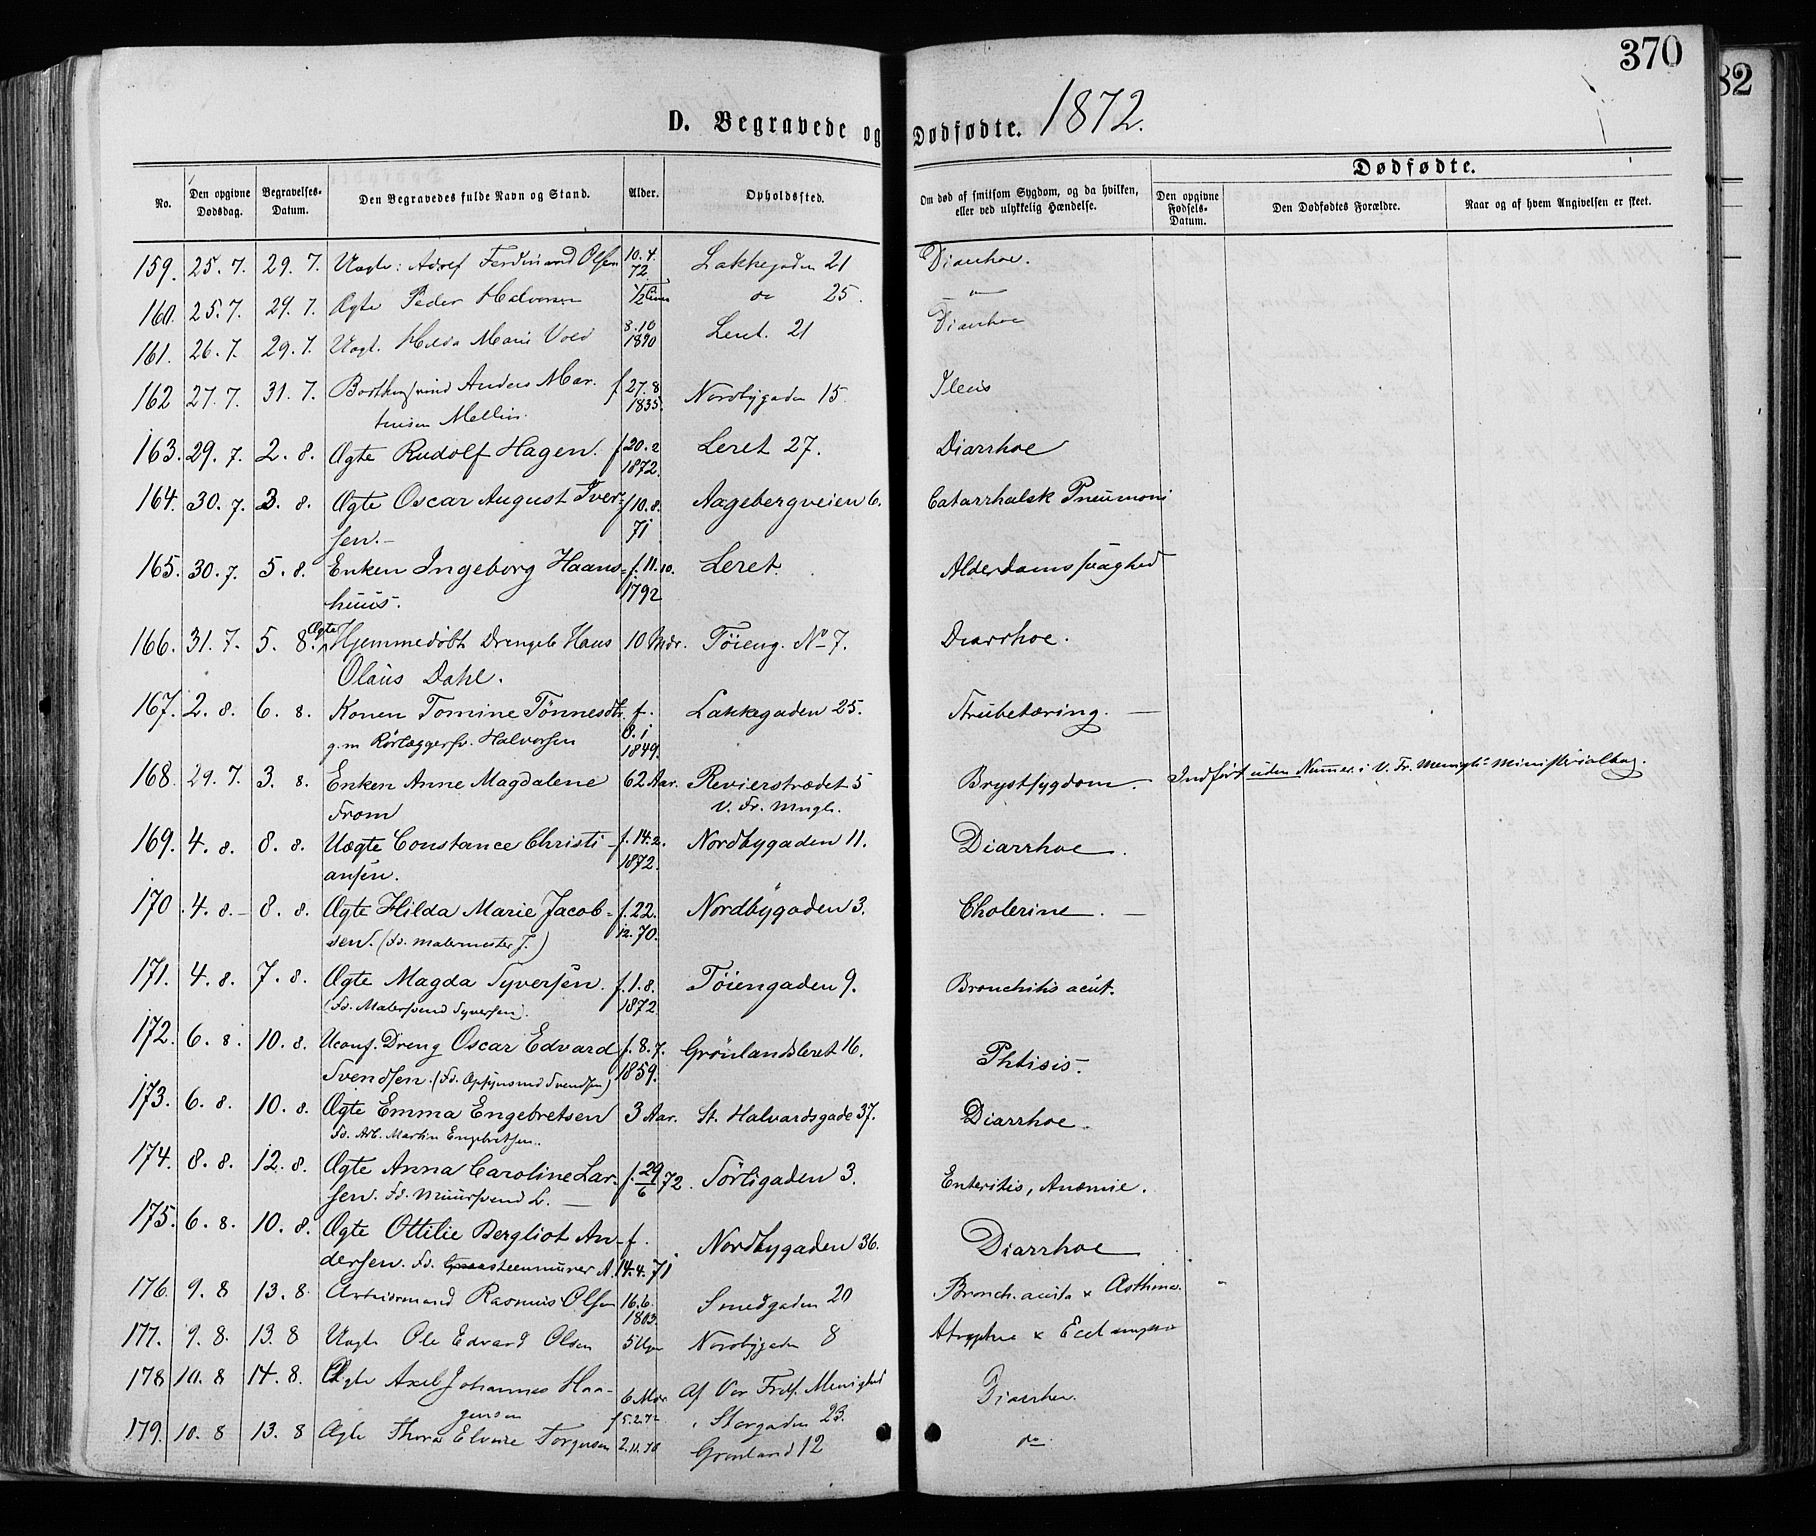 370
82
D. Begravede og Dødfødte. 1872.
Dødfødte.
No. Den opgivne Dødsdag. Begravelses-Datum. Den Begravedes fulde Navn og Stand. Alder. Opholdssted. Om død af smitsom Sygdom, og da hvilken, eller ved ulykkelig Hændelse. Den opgivne Fødsels-Datum. Den Dødfødtes Forældre. Naar og af hvem Angivelsen er skeet.
159. 25. 7. 29. 7. Uægte: Adolf Ferdinand Olsen 10.4. Lakkegaden 21 Diarrhoe.
72.
160. 25. 7. 29. 7. Ægte Peder Halvorsen 1/2 do 25. "
161. 26. 7. 29. 7. Uægt. Hilda Marie Vold 8.10 Leret. 21 Diarrhoe
1870
162 27. 7. 31. 7. Anders Mar- f 27.8 Nordbygaden 15. Ileus
tinsen Mellin. 1835.
163. 29. 7. 2. 8. Ægte Rudolf Hagen. f 20.2 Leret 27. Diarrhoe
1872.
164. 30. 7. 3. 8. Ægte Oscar August Iver- f 10.8. Aagebergveien 6. Catarrhalsk Pneumoni
sen.- 71
165. 30. 7. 5. 8. Enken Ingeborg Haans- f. 11.10. Leret. Alderdomssvaghed
huus. 1792
166. 31. 7. 5. 8. Ægte Hjemmedøbt Drengeb. Hans 10 Mdr. Tøieng. No 7. Diarrhoe.
Olaus Dahl.
167. 2. 8. 6. 8. Konen Tomine Tønnesdtr. f. Lakkegaden 25. Strubetæring. —
g.m Rørlæggersv. Halvorsen 8.1
1849.
168. 29. 7. 3. 8. Enken Anne Magdalene 62 Aar. Revierstrædet 5 Brystsygdom. Indført uden Nummer i V. Fr. Menigh. Ministerialbog.
From V. Fr. Mngh.
169. 4. 8. 8. 8. Uægte Constance Christi- f. 14.2. Nordbygaden 11. Diarrhoe.
ansen. 1872.
170. 4. 8. – 8. 8. Ægte Hilda Marie Jacob- f. 22. Nordbygaden 3. Cholerine. —
sen. (Fd. Malermester J.) 12. 70.
171. 4. 8. 7. 8. Ægte Magda Syversen. f. 1. 8. Tøiengaden 9. Bronchitis acut.
(Fd. Malersvend Syversen). 1872
172. 6. 8. 10. 8. Uconf. Dreng Oscar Edvard f. 8. 7. Grønlandsleret 16. Phtisis.
Svendsen. (Fd. Svendsen) 1859.
173. 6. 8. 10. 8. Ægte Emma Engebretsen 3 Aar. St. Halvardsgade 37. Diarrhoe.
Fd. Arb. Martin Engebretsen.
174. 8. 8. 12. 8. Ægte Anna Caroline Lar- f. 29/6 72. Sørligaden 3. Enteritis, Anæmie.
sen. Fd. Muursvend L. —
175. 6. 8. 10. 8. Ægte Ottilie Bergliot An- f. Nordbygaden 36. Diarrhoe
dersen. Fd. steenmurer A. 14.4.71
176. 9. 8 13. 8. Arbeidsmand Rasmus Olsen 16.6. Smedgaden 20 Bronch. acuta x Asthma.
1803.
177. 9. 8. 13. 8 Uægte Ole Edvard Olsen 5 Uger Nordbygaden 8 Atrophia x Eclampsia
178 10. 8 14. 8. Ægte Axel Johannes Haa- 6 Mdr Af Vor Frels. Menighed Diarrhoe.
gensen f 5.2.72 Storgaden 23.
179. 10. 8 13. 8 Ægte Thora Elvine Torgersen 2.11.70 Grønland 12 do